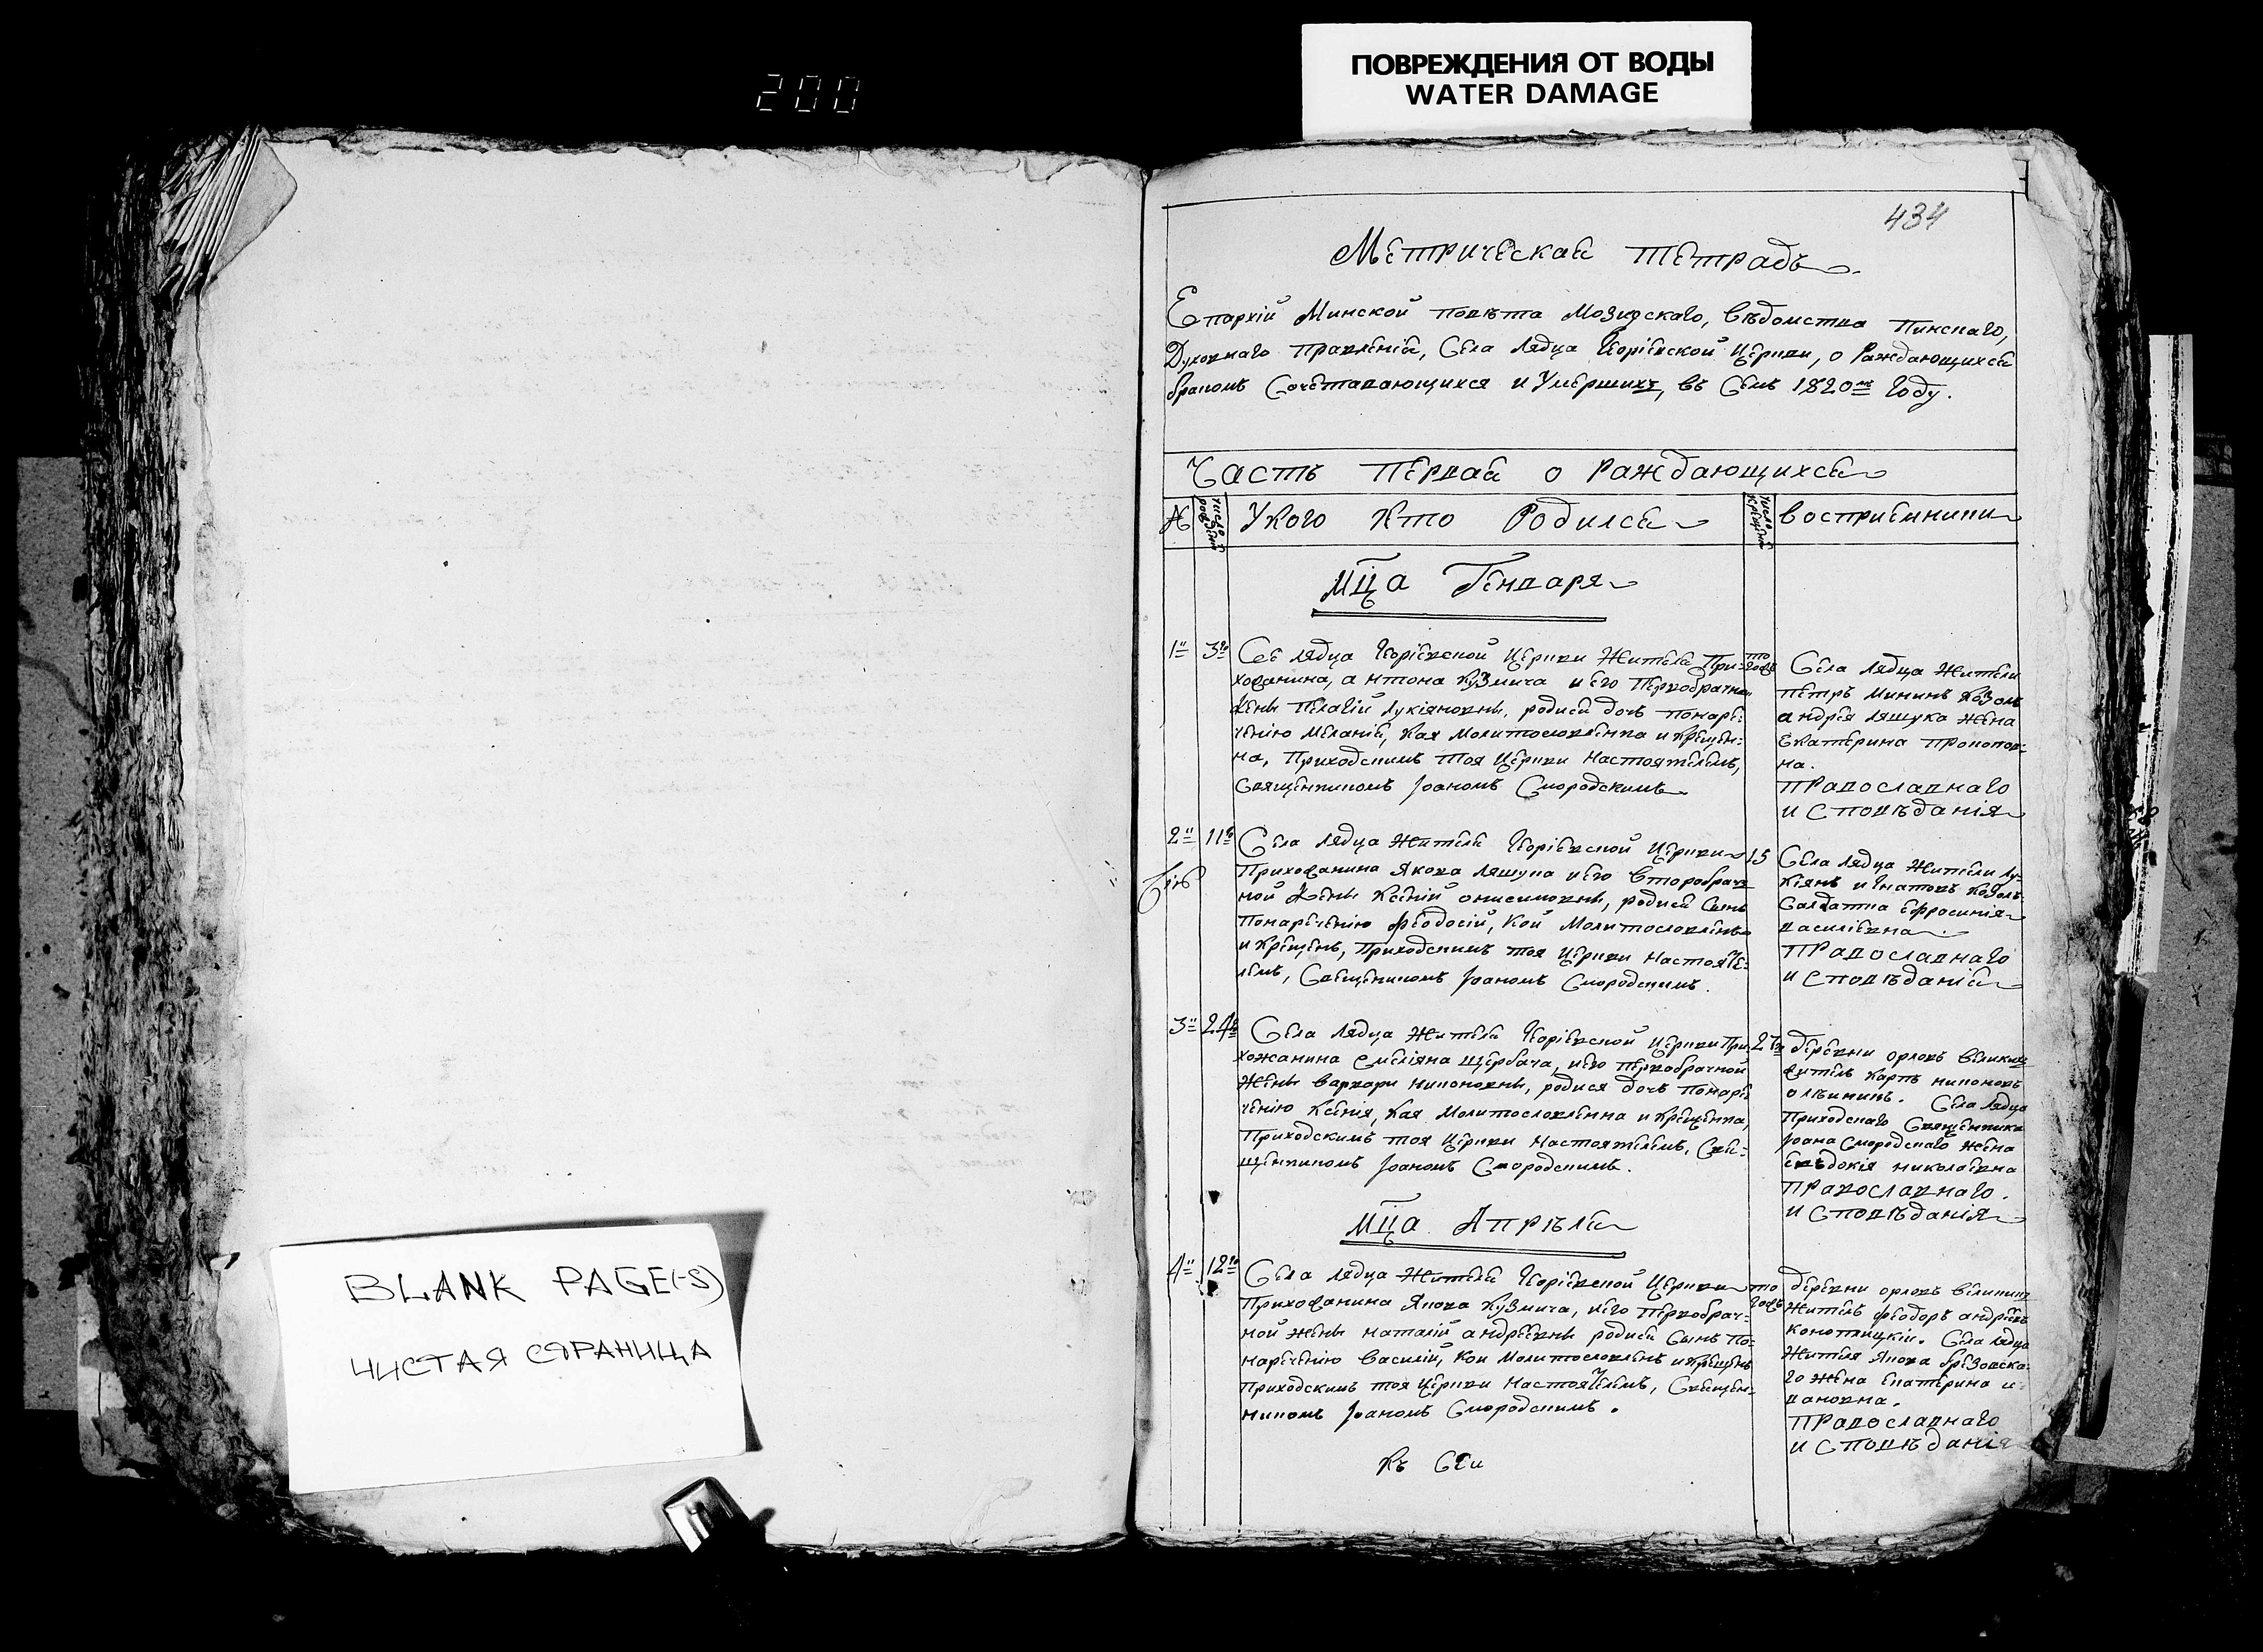 200
ПОВРЕЖДЕНИЯ ОТ ВОДЫ
WATER DAMAGE
BLANK PAGE(-S)
ЧИСТАЯ СТРАНИЦА
434
Метрическая тетрадь
Епархiи Минской повѣта Мозирскаго, вѣдомства Пинскаго,
Духовнаго правленiя, Села Лядца Георгiевской Церкви, о Раждающихся
браком Сочетавающихся и Умершихъ, въ Семъ 1820мъ Году.
Часть первая о Раждающихся
№ число рожденiй У кого кто Родился число крещенiй восприемники
Мц̃а Генваря
1й 3го Се Лядца Георгiевской Церкви Жителя При=
хожанина, антона Кузмича и его Первобрачна
жены Пелагiи Лукiяновны, родися дочь понаре=
ченiю Меланiя, Кая Молитвословленна и Крещен=
на, Приходскимъ тоя Церкви Настоятелемъ,
Священникомъ Iоаномъ Смородскимъ
тогожъ
Села Лядца Жители
петръ Мининъ Козолъ
андрея Ляшука жена
Екатерина прокопов=
на.
Православнаго
исповѣданiя
2й 11го Села Лядца Жителя Георгiевской Церкви
Прихожанина Якова Ляшука и его Второбрач
ной Жены Ксенiи онисимовны, родися Сынъ
Понареченiю Феодосiй, Кой Молитвословленъ
и Крещенъ, Приходскимъ тоя Церкви Настояте=
лемъ, Священникомъ Iоаномъ Смородскимъ.
15
Села Лядца Жители Лу=
кiянъ Игнатовъ Козолъ
Салдатка Ефросинiя
василiевна
Православнаго
исповѣданiя
3й 24го Села Лядца Жителя Георгiевской Церкви При
хожанина емелiяна Щербача, и его первобрачной
Жены Варвари никоновны, родися дочь понаре
ченiю Ксенiя, Кая Молитвословленна и Крещенна,
Приходскимъ тоя Церкви Настоятелемъ, Свя=
щенникомъ Iоаномъ Смородскимъ.
27го
деревни орловъ великихъ
житель Карпъ никоновъ
Села Лядца
Приходскаго Священника
Iоана Смородскаго Жена
евдокiя николаевна
Православнаго.
исповѣданiя
Мц̃а Апрѣля
4й 12го Села Лядца Жителя Георгiевской Церкви
Прихожанина Якова Кузмича, и его первобрач=
ной жены наталiи андреевны родися Сынъ по=
нареченiю Василiй, Кой Молитвословленъ и Крещенъ
Приходскимъ тоя Церкви Настоятелемъ, Священ=
никомъ Iоаномъ Смородскимъ.
тогожъ
деревни орловъ великихъ
Житель феодоръ андреевъ
Села Лядца
Жителя Якова Брезовска=
го жена Екатерина и=
вановна.
Православнаго
исповѣданiя
Къ Сеи